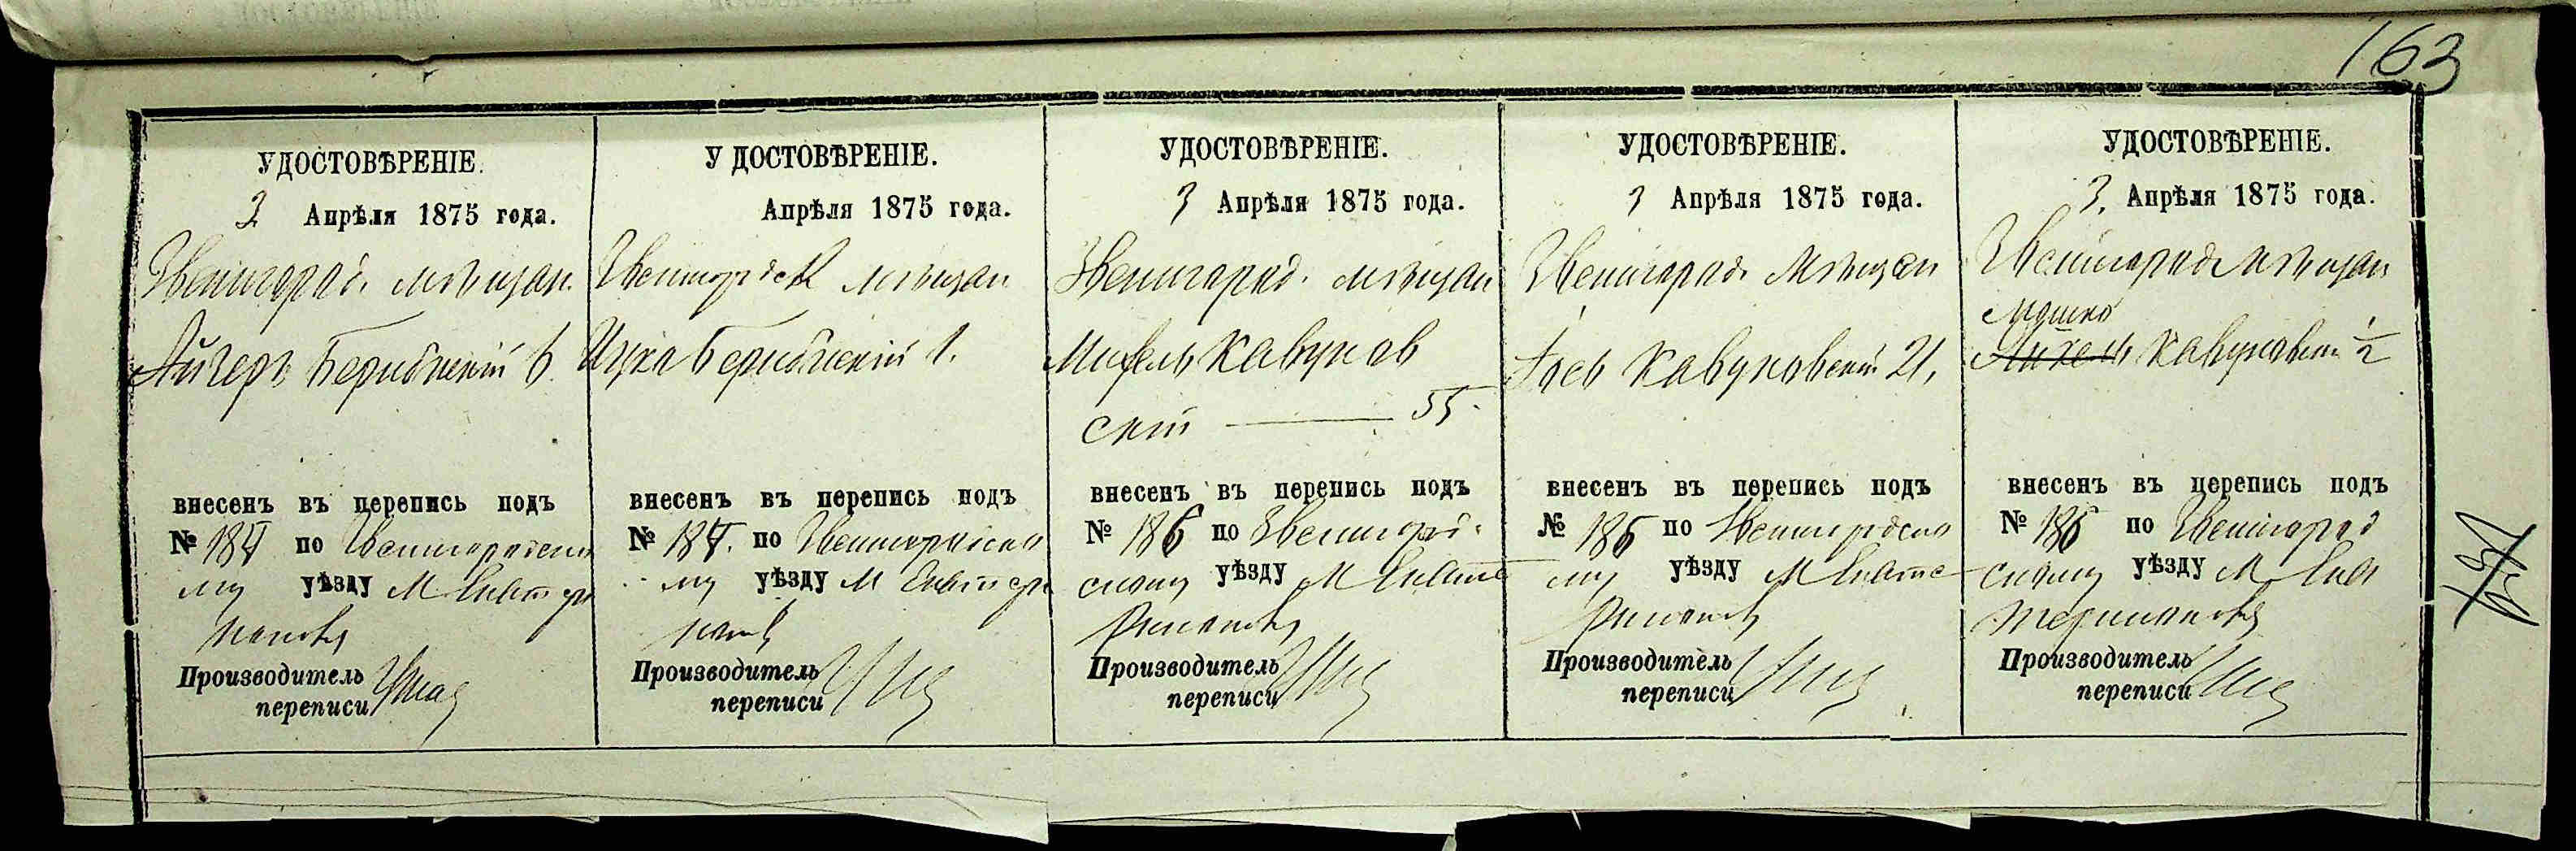 163
УДОСТОВѢРЕНІЕ.
3 Апрѣля 1875 года.
Звенигород. мѣщан.
Бердичевскій 6
внесенъ въ перепись подъ
№ 184 по Звенигородско
му уѣзду М Екатери
нополь
Производитель
переписи
У ДОСТОВѢРЕНІЕ.
Апрѣля 1875 года.
мѣщан
Ицка 1.
внесенъ въ перепись подъ
№ 184. по Звенигородско
му уѣзду М Екатери
Производитель
переписи
УДОСТОВѢРЕНІЕ.
3 Апрѣля 1875 года.
Звенигород. мѣщан
Кавунов
скій — 55.
внесенъ въ перепись подъ
№ 186 по Звенигород-
скому уѣзду М Екате
Производитель
переписи
УДОСТОВѢРЕНІЕ.
3 Апрѣля 1875 года.
Звенигород. мѣщан
Кавуновскій 21,
внесенъ въ перепись подъ
№ 186 по Звенигородско
му уѣзду М Екате
Производитель
переписи
УДОСТОВѢРЕНІЕ.
3. Апрѣля 1875 года.
Звенигород мѣщан
Мошко
Кавуновскій 1/2
внесенъ въ перепись подъ
№ 186 по Звенигород
скому уѣзду М Ека
Производитель
переписи